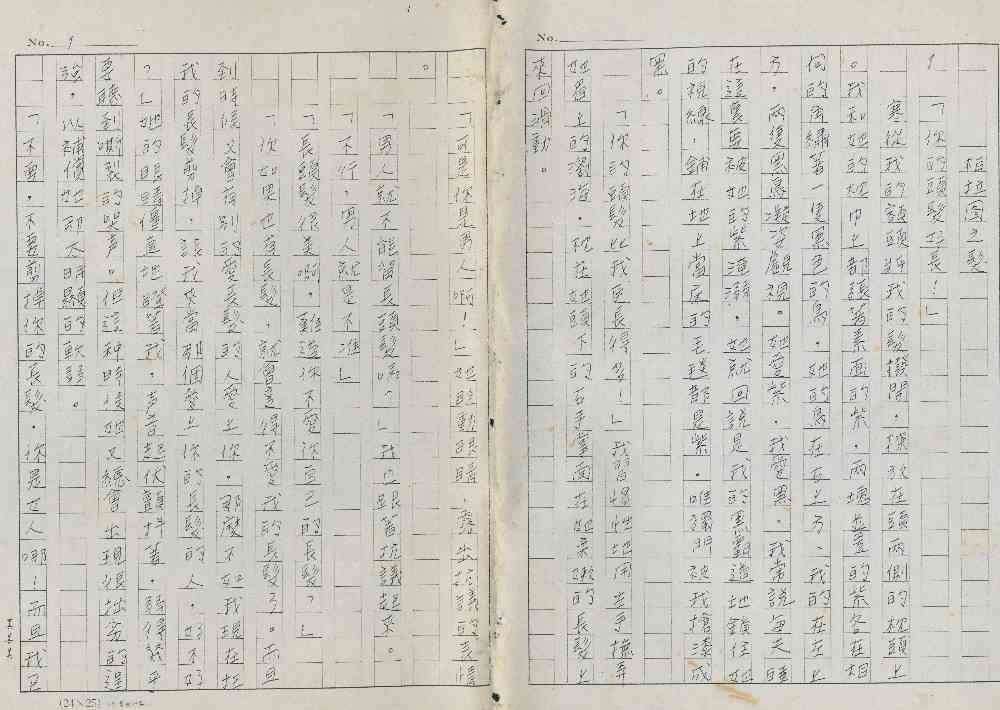 No.
柏拉圖之髮
1
「你的頭髮好長！」
寒從我的額頭將我的髮撥開，擺放在頭兩側的枕頭上
。我和她的枕巾上都鋪著素面的紫，兩塊並置的紫各在相
同的角繡著一隻黑色的鳥，她的鳥在右上方、我的在左上
方，兩隻黑鳥凝望觀視。她愛紫，我愛黑，我常說每天睡
在這裏要被她的紫淹溺，她就回說是我的黑霸道地鎖住她
的視線，鋪在地上當床的毛毯都是紫，唯獨門被我搶漆成
黑。
「你的頭髮比我更長得多！」我習慣性地用左手撫弄
她眉上的瀏海，枕在她頭下的右手掌面在她柔嫩的長髮上
來回滑動。
No. 1
「可是你是男人啊！」她眨動眼睛，露出抗議的表情
。
「男人就不能留長頭髮嗎？」我也跟著抗議起來。
「不行，男人就是不准」
「長頭髮很美啊，難道你不愛你自己的長髮？」
「你如果也留長髮，就會變得不愛我的長髮了。而且
到時候又會有別的愛長髮的人愛上你，那麼不如我現在把
我的長髮剪掉，讓我來當那個愛上你的長髮的人，好不好
？」她的眼睛僵直地瞪著我，聲音起伏顫抖著，弱得幾乎
要聽到撕裂的哭聲。但這種時候她又總會出現很社會的逞
強，以補償她那太明顯的軟弱。
「不要，不要剪掉你的長髮，你是女人哪！而且我已
(24×25)